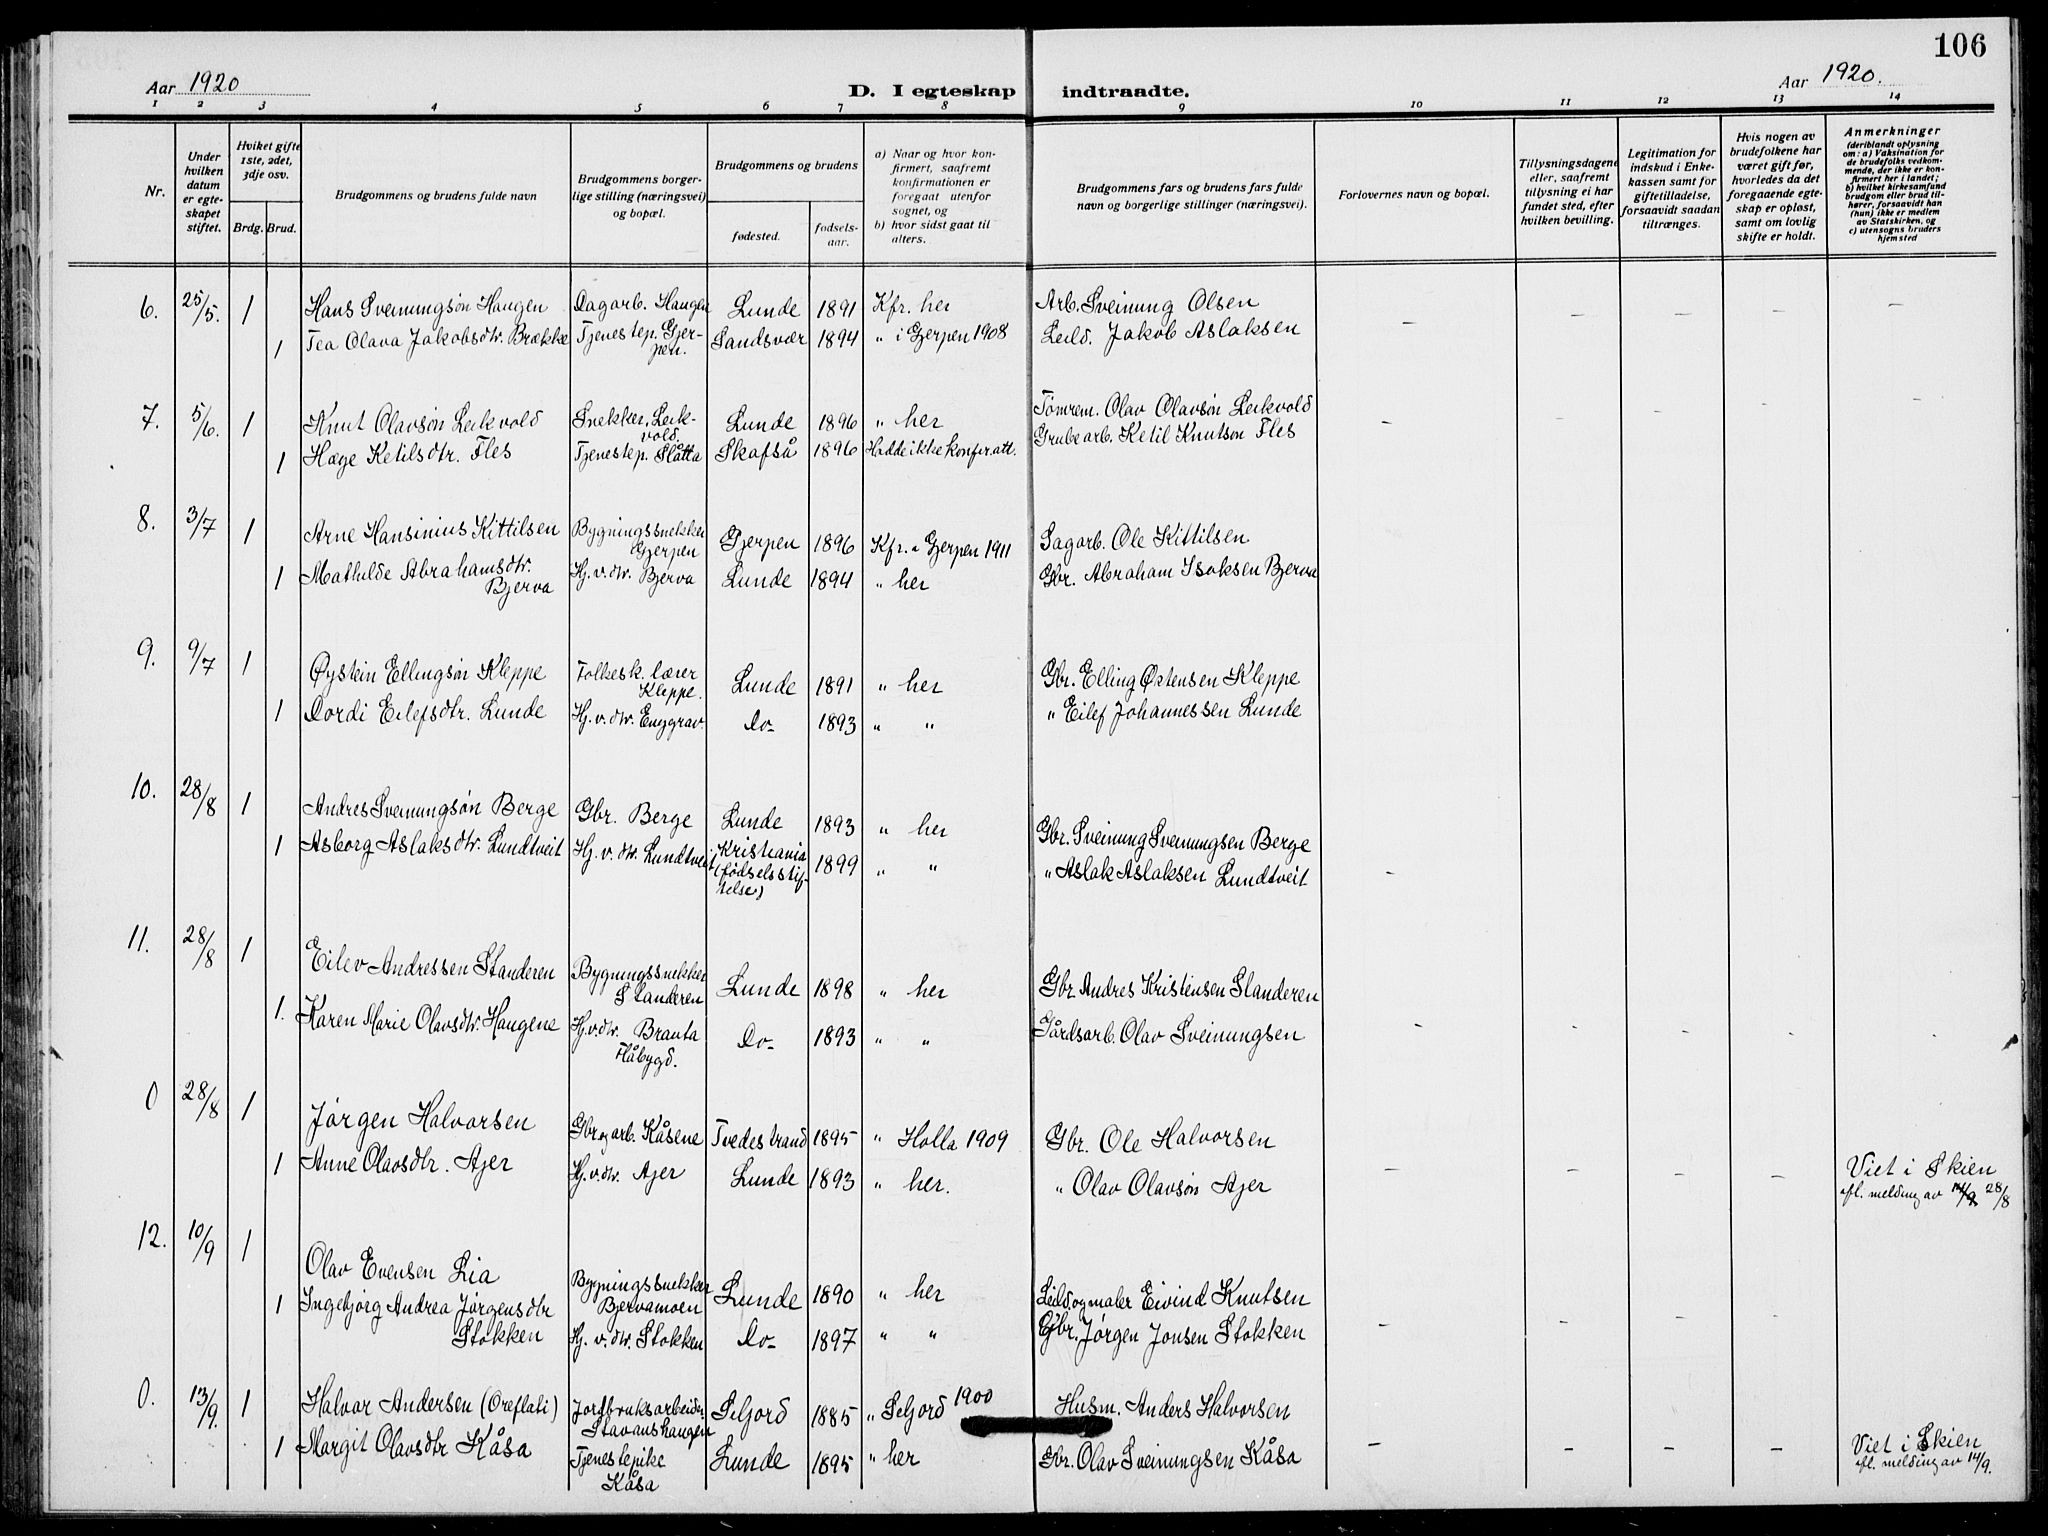 106
Aar 1920
D. I egteskap indtraadte.
Aar 1920.
1 2 3 4 5 6 7 8 9 10 11 12 13 14
Nr.
Under hvilken datum er egteskapet stiftet.
Hviket gifte 1ste, 2det, 3dje osv.
Brdg. Brud.
Brudgommens og brudens fulde navn
Brudgommens borgerlige stilling (næringsvei) og bopæl.
Brudgommens og brudens
fødested.
fødselsaar.
a) Naar og hvor konfirmert, saafremt konfirmationen er foregaat utenfor sognet, og
b) hvor sidst gaat til alters.
Brudgommens fars og brudens fars fulde navn og borgerlige stillinger (næringsvei).
Forlovernes navn og bopæl.
Tillysningsdagene eller, saafremt tillysning ei har fundet sted, efter hvilken bevilling.
Legitimation for indskud i Enkekassen samt for giftetilladelse, forsaavidt saadan tiltrænges.
Hvis nogen av brudefolkene har været gift før, hvorledes da det foregaaende egteskap er opløst, samt om lovlig skifte er holdt.
Anmerkninger (deriblandt oplysning om: a) Vaksination for de brudefolks vedkommende, der ikke er konfirmert her i landet; b) hvilket kirkesamfund brudgom eller brud tilhører, forsaavidt han (hun) ikke er medlem av Statskirken, og c) utensogns bruders hjemsted
6. 25/5. 1 Hans Sveinungsøn Haugen Dagarb. Haugen Lunde 1891 Kfr. her Arb. Sveinung Olsen
1 Tea Olava Jakobsdtr. Brække Tjenestep. Gjerpen. Sandsvær 1894 " i Gjerpen 1908 Leild. Jakob Aslaksen
7. 5/6. 1 Knut Olavsøn Leikvold Snekker, Leikvold. Lunde 1896 " her Tømrem. Olav Olavsøn Leikvold
1 Hæge Ketilsdtr. Fles Tjenestep. Slåtta Skafså 1896 Hadde ikke konfir.att. Grubearb. Ketil Knutson Fles
8. 3/7 1 Arne Hansinius Kittilsen Bygningssnekker Gjerpen Gjerpen 1896 Kfr. i Gjerpen 1911 Sagarb. Ole Kittilsen
1 Mathilde Abrahamsdtr. Bjerva Hj.v.dtr. Bjerva Lunde 1894 " her Gbr. Abraham Isaksen Bjerva
9. 9/7 1 Øystein Ellingsøn Kleppe Folkesk. lærer Kleppe. Lunde 1891 " her Gbr. Elling Østensen Kleppe
1 Dordi Eilefsdtr. Lunde Hj.v.dtr. Enggrav. Do- 1893 " " " Eilef Johannessen Lunde
10. 28/8 1 Andres Sveinungsøn Berge Gbr. Berge Lunde 1893 " her Gbr. Sveinung Sveinungsen Berge
1 Asborg Aslaksdtr. Lundtveit Hj.v.dtr. Lundtveit Kristiania (fødselsstiftelse) 1899 " " " Aslak Aslaksen Lundtveit
11. 28/8 1 Eilev Andressen Slanderen Bygningssnekker Slanderen Lunde 1898 " her Gbr Andres Kristensen Slanderen
1. Karen Marie Olavsdtr. Haugene Hj.v.dtr. Brauta Flåbygd. Do- 1893 " " Gårdsarb. Olav Sveinungsen
0 28/8 1 Jørgen Halvorsen Gbr og arb. Kåsene Tvedestrand 1895 " Holla 1909 Gbr. Ole Halvorsen
1 Anne Olavsdtr. Ajer Hj.v.dtr. Ajer Lunde 1893 " her. " Olav Olavsøn Ajer Viet i Skien
efl. melding av 28/8
12. 10/9 1 Olav Evensen Lia Bygningssnekker Bjervamoen Lunde 1890 " her Leild. og maler Eivind Knutsen
1 Ingebjørg Andrea Jørgensdtr Stokken Hj.v.dtr. Stokken Do- 1897 " " Gbr. Jørgen Jonsen Stokken
0. 13/9. 1 Halvor Andersen (Oreflati) Jordbruksarbeider. Stavanshaugen Seljord 1885 " Seljord 1900 Husm. Anders Halvorsen
1 Margit Olavsdtr Kåsa Tjenestepike Kåsa Lunde 1895 " her Gbr. Olav Sveinungsen Kåsa Viet i Skien
efl. melding av 14/9.